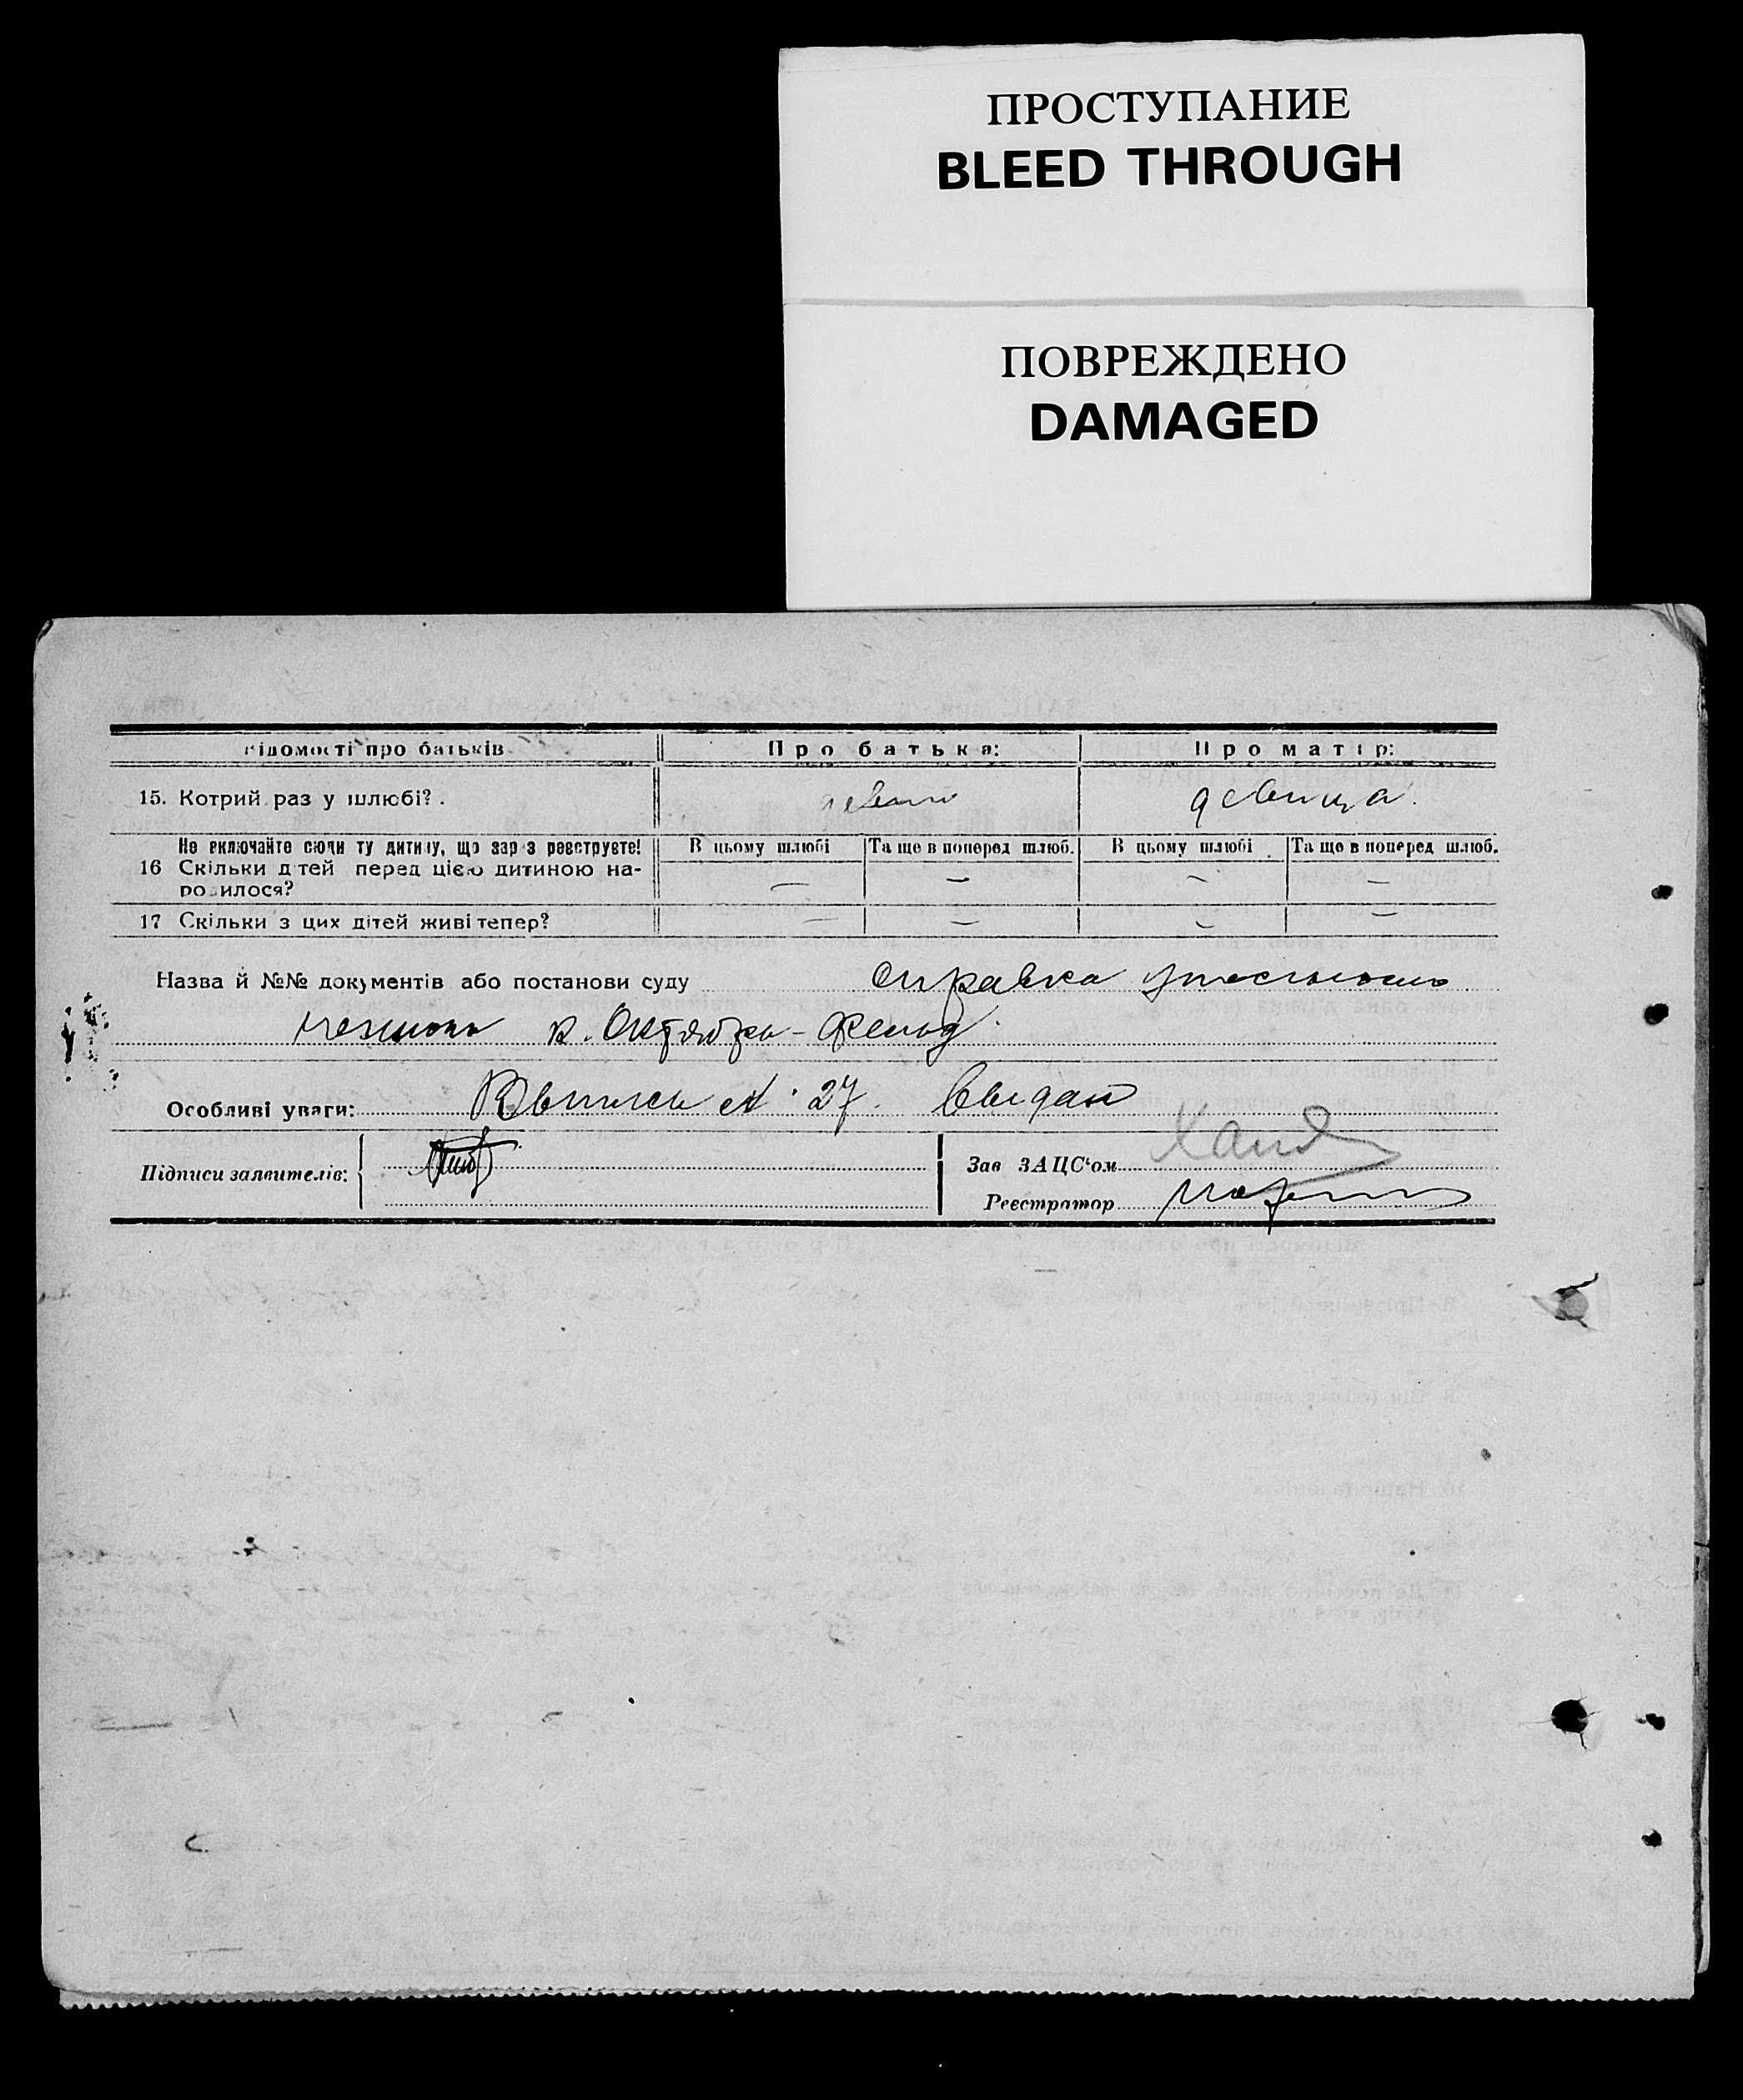 ПРОСТУПАНИЕ
BLEED THROUGH
ПОВРЕЖДЕНО
DAMAGED
Відомості про батьків Про батька: Про матір:
15. Котрий раз у шлюбі? . девица.
Не включайте сюди ту дитину, що зараз реєструєте! В цьому шлюбі Та ще в поперед шлюб. В цьому шлюбі Та ще в поперед шлюб.
16 Скільки дітей перед цією дитиною на-
родилося? — — — —
17 Скільки з цих дітей живі тепер? — — — —
Назва й №№ документів або постанови суду справка
к. Октябрь-Фельд.
Особливі уваги: № 27.
Підписи заявителів: Зав ЗАЦС‘ом
Реєстратор